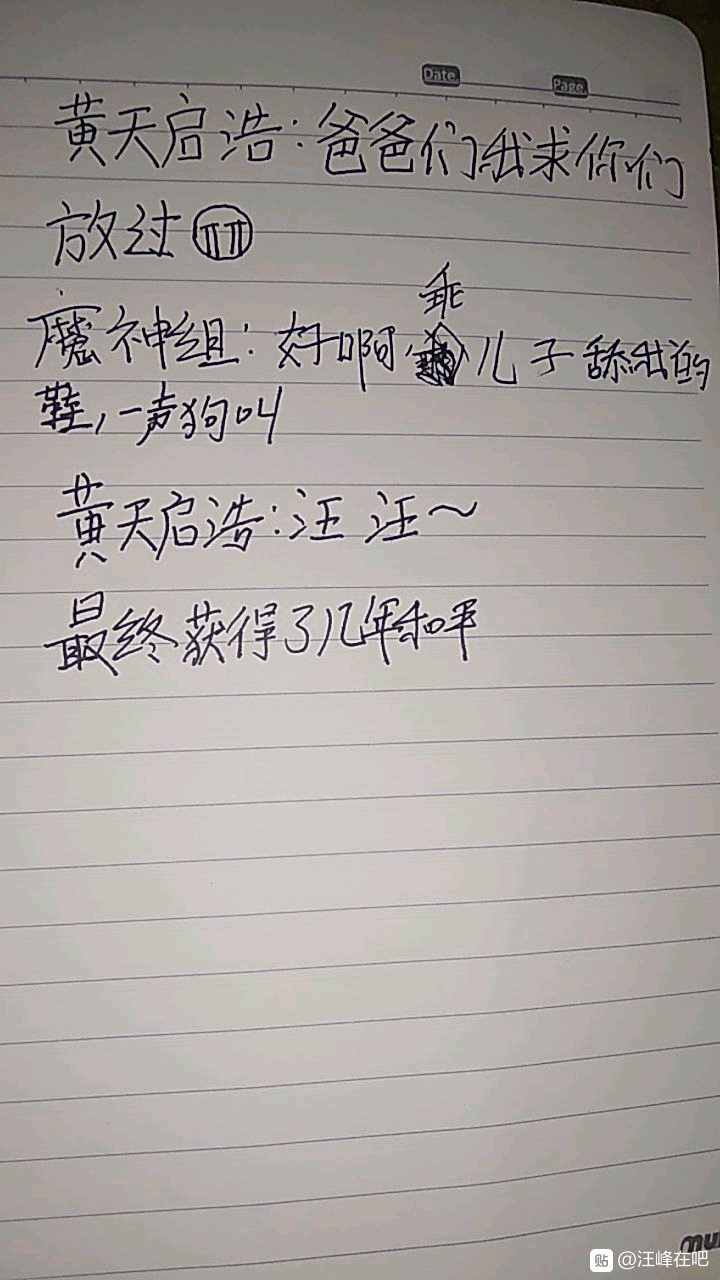 Date.
Page.
黄天启浩：爸爸们我求你们
放过
乖
魔神组：好啊，儿子舔我的
鞋，一声狗叫
黄天启浩：汪汪～
最终获得了几年和平
贴 @汪峰在吧